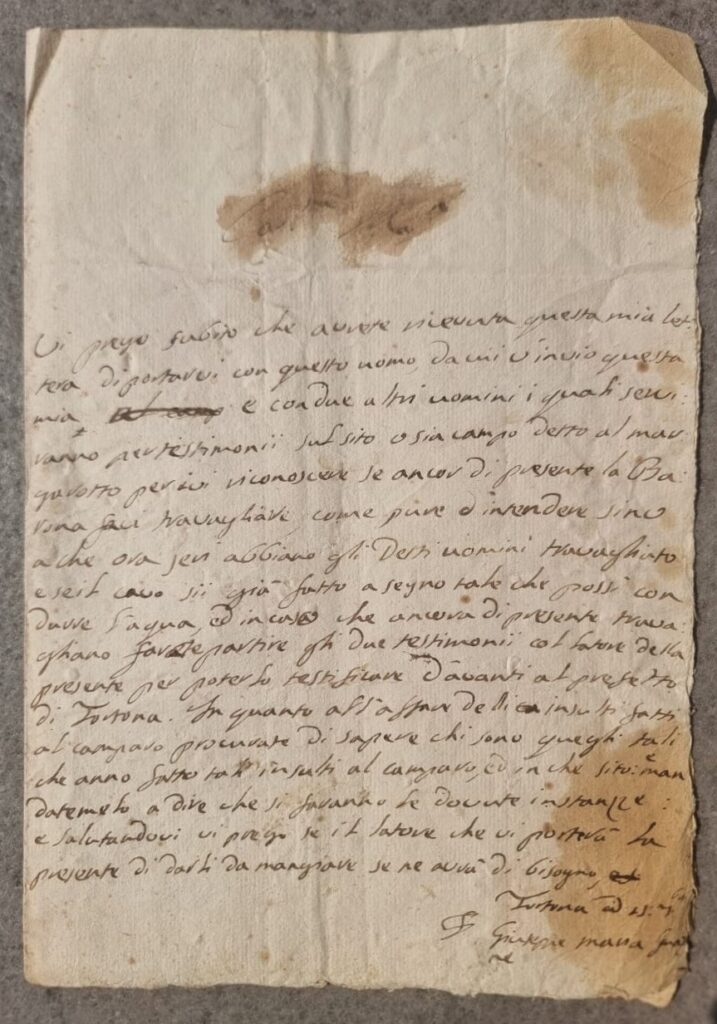 Vi prego subito che avrete ricevuta questa mia let:
tera di portarvi con questo uomo, da cui v'invio questa
mia e con due altri uomini i quali servi:
ranno per testimonii sul sito o sia campo detto al mar
garotto per ivi riconoscere se ancor di presente la Ba
rona faci travagliare, come pure d'intendere sino
a che ora jeri abbiano gli detti uomini travagliato
e se il cavo sii già fatto a segno tale che possi con
durre l'acqua, ed in caso che ancora di presente trava:
gliano farete partire gli due testimonii col latore della
presente per poterlo testificare d'avanti al prefetto
di Tortona. In quanto all'affare delli insulti fatti
al camparo procurate di sapere chi sono quegli tali
che anno fatto tali insulti al camparo, ed in che sito: e man
datemelo a dire che si faranno le dovute instanze:
e salutandovi vi prego se il latore che vi porterà la
presente di darli da mangiare se ne avrà di bisogno,
Tortona
Giuseppe maria